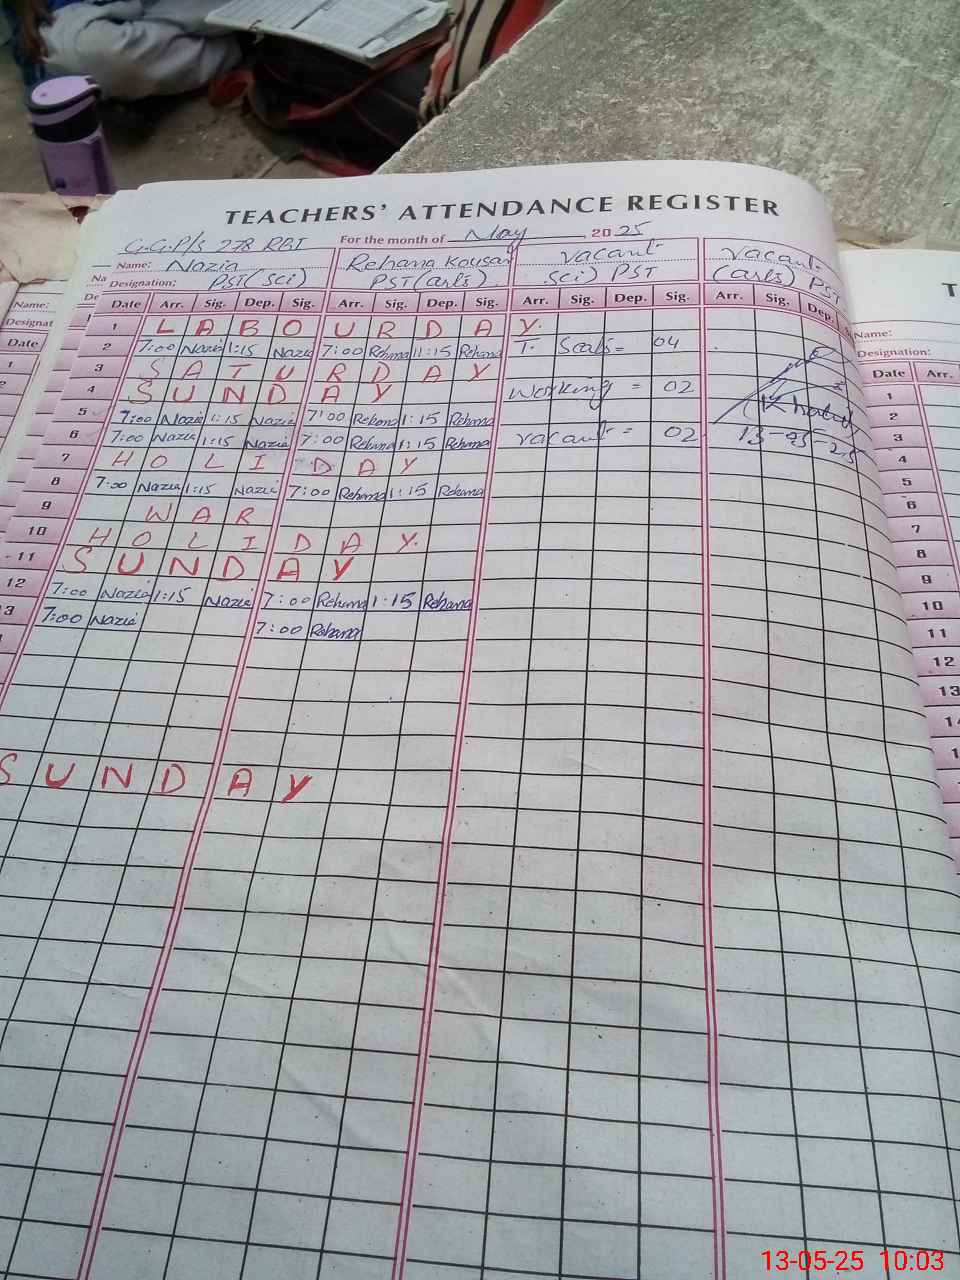 TEACHERS' ATTENDANCE REGISTER
G.G.P/s 278 RBI For the month of May 2025
Name: Nazia Rehana Kousar vacant vacant
Designation: PST(sci) PST(arts) sci) PST (arts) PST
Date Arr. Sig. Dep. Sig. Arr. Sig. Dep. Sig. Arr. Sig. Dep. Sig. Arr. Sig. Dep.
1 LABOUR DAY.
2 7:00 Nazia 1:15 Nazia 7:00 Rehana 11:15 Rehana T. Seats = 04
3 SATURDAY
4 SUNDAY working = 02
5 7:00 Nazia 1:15 Nazia 7:00 Rehana 1:15 Rehana
6 7:00 Nazia 1:15 Nazia 7:00 Rehana 1:15 Rehana vacant = 02 13-05-25
7 HOLIDAY
8 7:00 Nazia 1:15 Nazia 7:00 Rehana 1:15 Rehana
9 WAR
10 HOLIDAY.
11 SUNDAY
12 7:00 Nazia 1:15 Nazia 7:00 Rehana 1:15 Rehana
3 7:00 Nazia 7:00 Rehana
SUNDAY
Name:
Designat
Date
1
2
Na
De
T
Name:
Designation:
Date Arr.
1
2
3
4
5
6
7
8
9
10
11
12
13
13-05-25 10:03